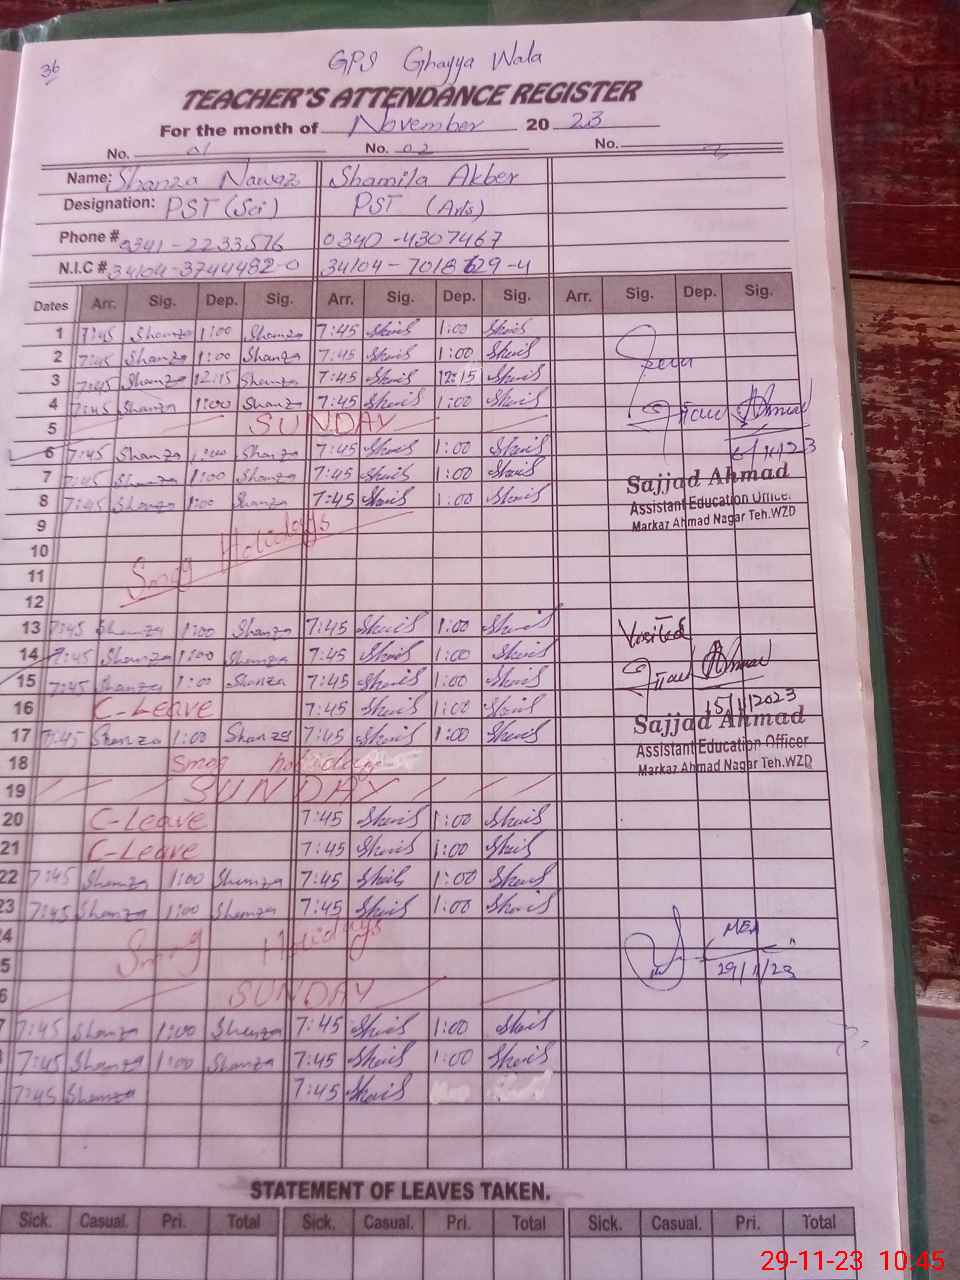 36
GPS Ghayya Wala
TEACHER'S ATTENDANCE REGISTER
For the month of November 20 23
No. 01 No. 02 No.
Name: Shanza Nawaz Shamila Akber
Designation: PST (Sci) PST (Arts)
Phone # 0341-2233576 0340-4307467
N.I.C # 34104-3744482-0 34104-7018629-4
Dates Arr. Sig. Dep. Sig. Arr. Sig. Dep. Sig. Arr. Sig. Dep. Sig.
1 7:45 Shanza 1:00 Shanza 7:45 1:00
2 7:45 Shanza 1:00 Shanza 7:45 1:00
3 7:45 Shanza 12:15 Shanza 7:45 12:15
4 7:45 Shanza 1:00 Shanza 7:45 1:00
5 SUNDAY
6 7:45 Shanza 1:00 Shanza 7:45 1:00 6/11/23
7 7:45 Shanza 1:00 Shanza 7:45 1:00 Sajjad Ahmad
8 7:45 Shanza 1:00 Shanza 7:45 1:00 Assistant Education Officer.
Markaz Ahmad Nagar Teh.WZD
9 Smog Holidays
10
11
12
13 7:45 Shanza 1:00 Shanza 7:45 1:00 Visited
14 7:45 Shanza 1:00 Shanza 7:45 1:00
15 7:45 Shanza 1:00 Shanza 7:45 1:00
16 C-Leave 7:45 1:00 15/11/2023
17 7:45 Shanza 1:00 Shanza 7:45 1:00 Sajjad Ahmad
Assistant Education Officer
18 Smog holiday Markaz Ahmad Nagar Teh.WZD
19 SUNDAY
20 C-Leave 7:45 1:00
21 C-Leave 7:45 1:00
22 7:45 Shanza 1:00 Shanza 7:45 1:00
23 7:45 Shanza 1:00 Shanza 7:45 1:00
4 Smog Holidays MEA
5 29/11/23
6 SUNDAY
7 7:45 Shanza 1:00 Shanza 7:45 1:00
7:45 Shanza 1:00 Shanza 7:45 1:00
7:45 Shanza 7:45
STATEMENT OF LEAVES TAKEN.
Sick. Casual. Pri. Total Sick. Casual. Pri. Total Sick. Casual. Pri. Total
29-11-23 10:45